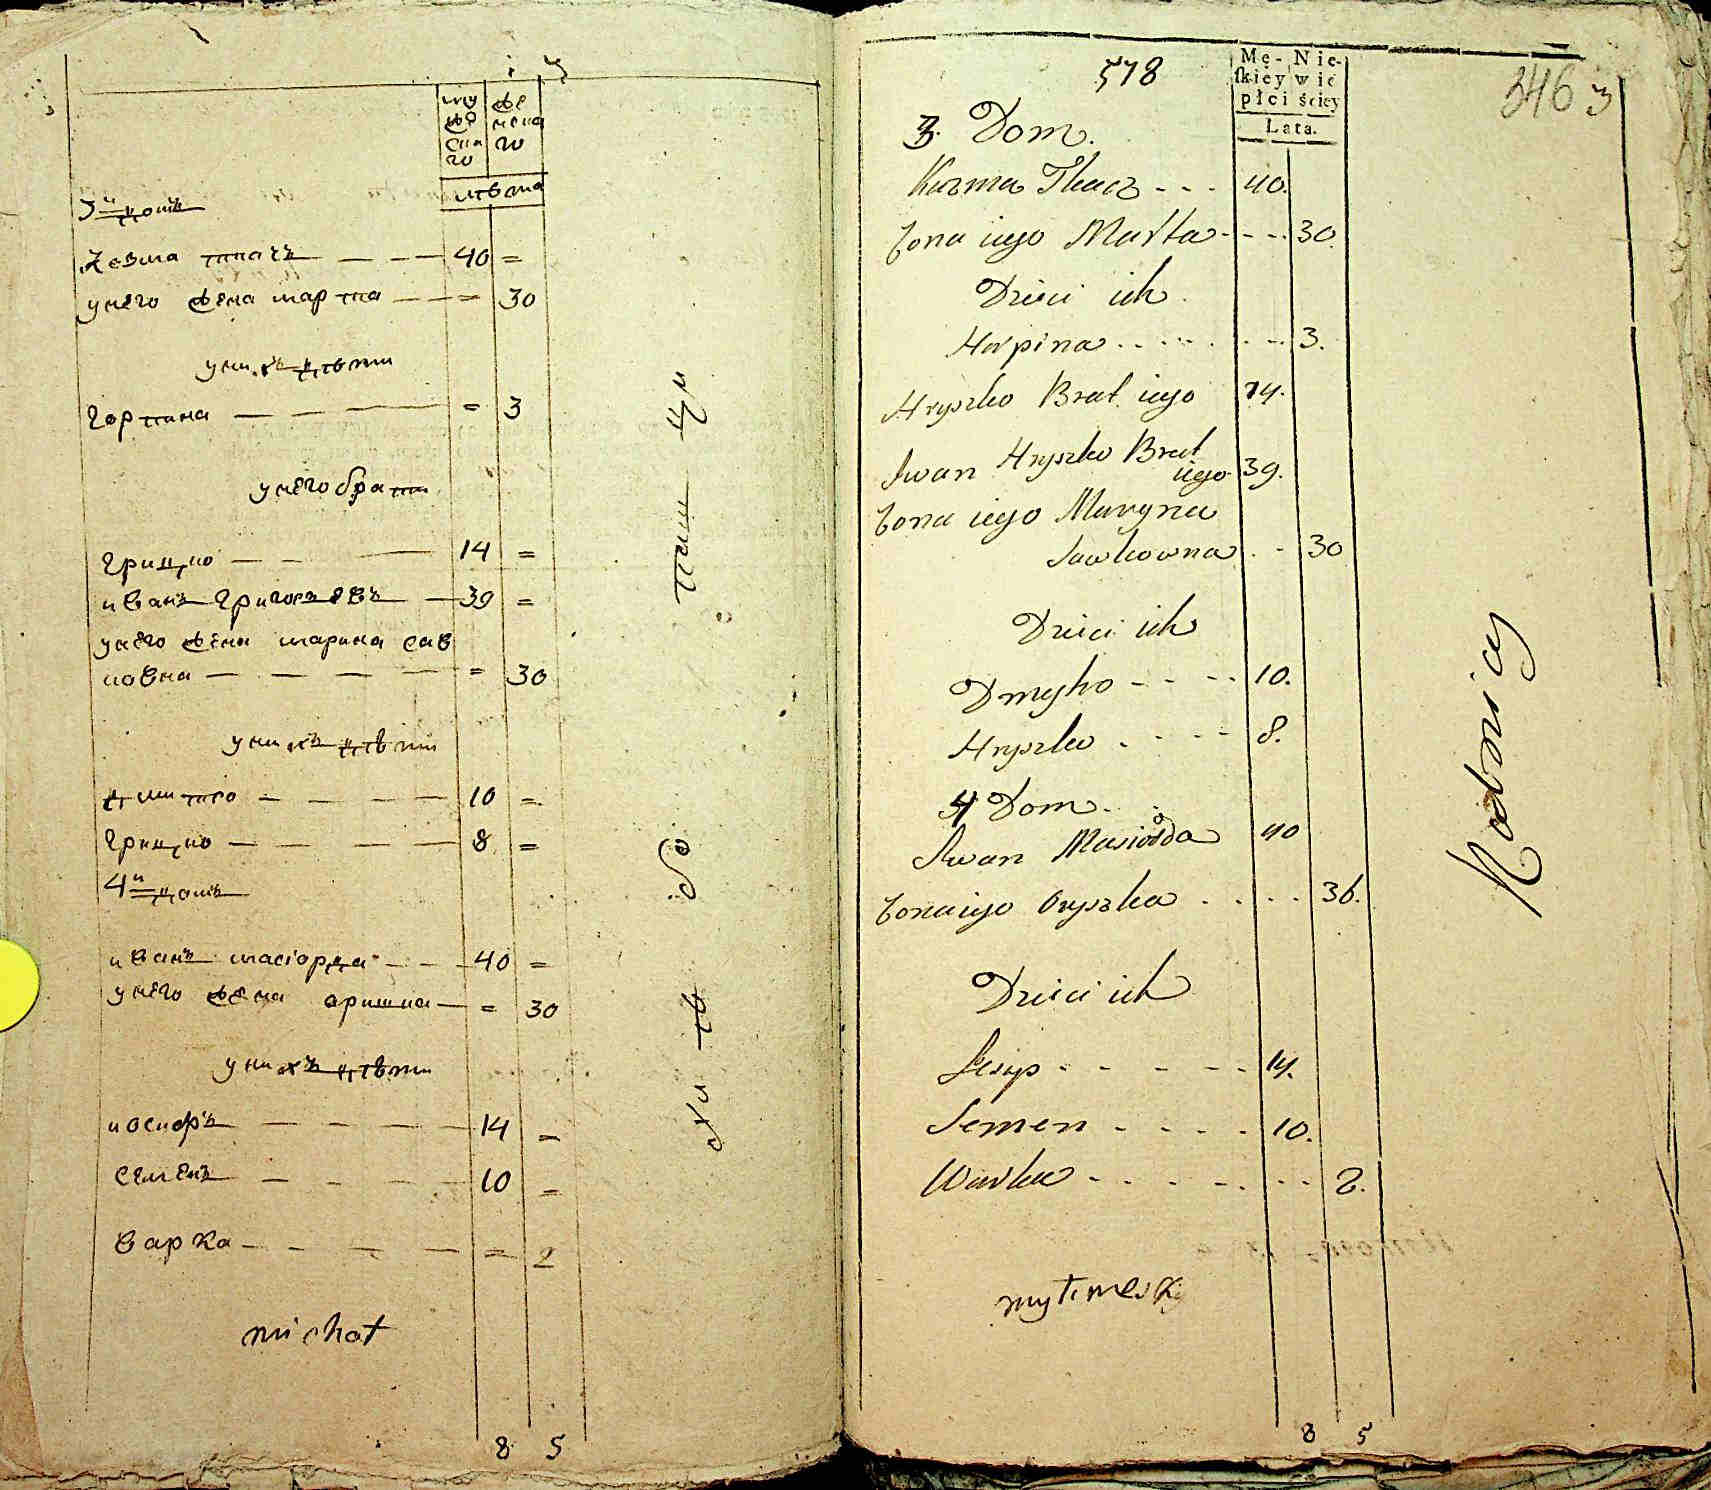 му
жес
ка
го
же
нска
го
лѣта
3й домъ
Козма ткачъ — — — 40 =
у него жена марта — — = 30
у нихъ дѣти
горпина — — — = 3
у него брати
грицко — — — 14 =
иванъ григорьевъ — 39 =
у него жена марина сав
ковна — — — — = 30
у нихъ дѣти
дмитро — — — — 10 =
грицко — — — — 8 =
4й домъ
иванъ масіорда — — 40 =
у него жена оришка — = 30
у нихъ дѣти
иосифъ — — — — 14 =
семенъ — — — — 10 =
варка — — — — = 2
michał
8 5
578
346 3
Mę- Nie-
skiey wie
płci ściey
Lata.
3. Dom.
Kuzma Tkacz - - - 40.
żona iego Marta - - - 30.
Dzieci ich
Horpina - - - - - 3.
Hryszko Brat iego 14.
Iwan Hryszko Brat
iego 39.
żona iego Maryna
Sawkowna - - 30
Dzieci ich
Dmytro - - - - 10.
Hryszko - - - - 8.
4 Dom.
Iwan Masiorda 40
żona iego Oryszka - - - - 36.
Dzieci ich
Iosyp - - - - - 14.
Semen - - - - 10.
Warka - - - - - - 2.
8 5